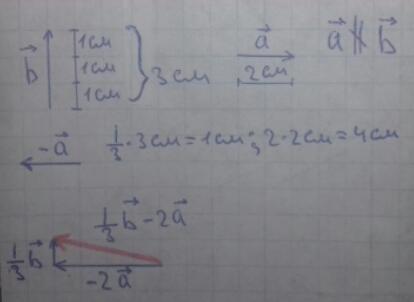 b⃗
1см
1см
1см
3см
a⃗
2см
a⃗ ∦ b⃗
-a⃗
1/3 · 3см = 1см; 2 · 2см = 4см
1/3 b⃗ - 2a⃗
1/3 b⃗
-2a⃗